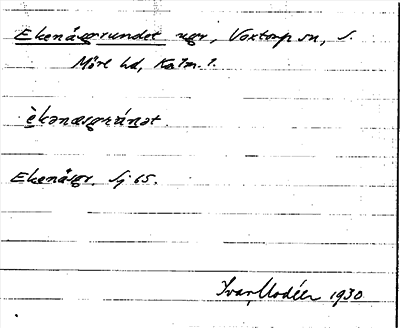 Ekenäsgrundet ngr, Voxtorp sn, S.
Möre hd, Kalm. l.
èkənæsgránət.
Ekenäsgr. Sj. 65.
Ivar Modéer 1930